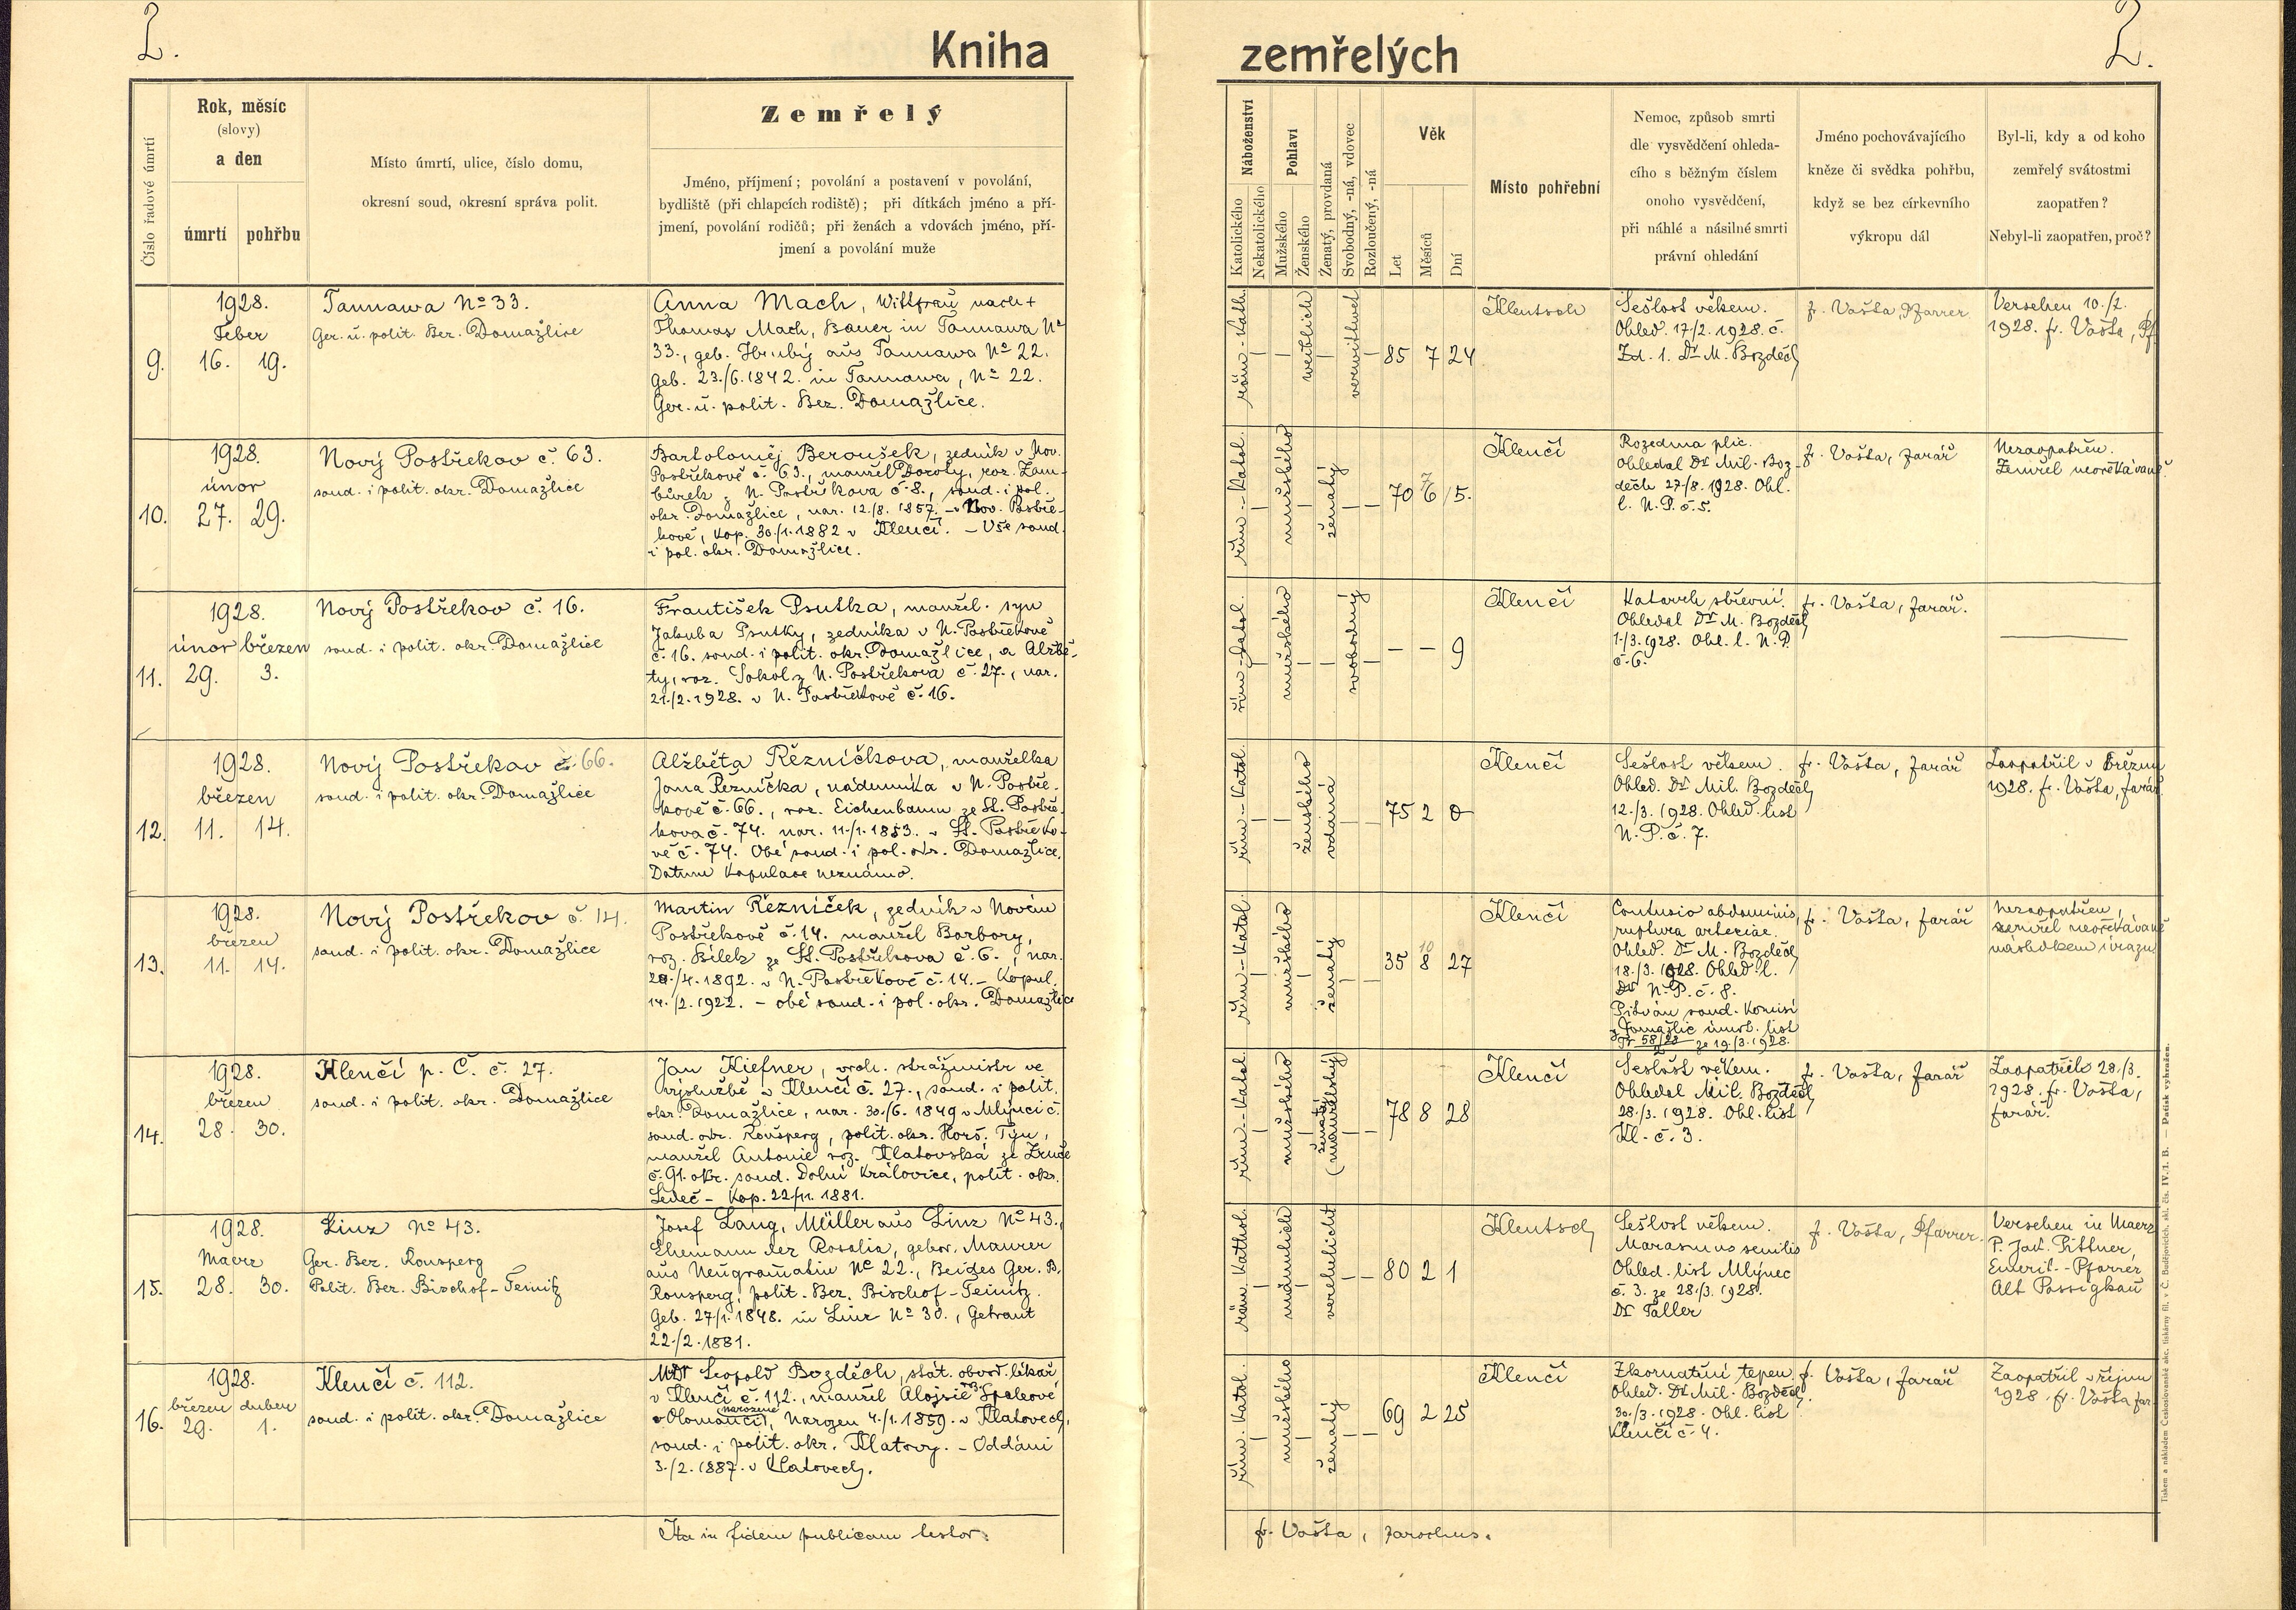 2.
Kniha
zemřelých
2.
Číslo řadové úmrtí
Rok, měsíc
(slovy)
a den
úmrtí
pohřbu
Místo úmrtí, ulice, číslo domu,
okresní soud, okresní správa polit.
Zemřelý
Jméno, příjmení; povolání a postavení v povolání,
bydliště (při chlapcích rodiště); při dítkách jméno a pří-
jmení, povolání rodičů; při ženách a vdovách jméno, pří-
jmení a povolání muže
Náboženství
Katolického
Nekatolického
Pohlaví
Mužského
Ženského
Ženatý, provdaná
Svobodný, -ná, vdovec
Rozloučený, -ná
Věk
Let
Měsíců
Dní
Místo pohřební
Nemoc, způsob smrti
dle vysvědčení ohleda-
cího s běžným číslem
onoho vysvědčení,
při náhlé a násilné smrti
právní ohledání
Jméno pochovávajícího
kněze či svědka pohřbu,
když se bez církevního
výkropu dál
Byl-li, kdy a od koho
zemřelý svátostmi
zaopatřen?
Nebyl-li zaopatřen, proč?
9.
1928.
Feber
16. 19.
Tannawa No 33.
Ger. u. polit. Ber. Domažlice
Anna Mach, Wittfrau nach +
Thomas Mach, Bauer in Tannawa No
33., geb. Hrubý aus Tannawa No 22.
Geb. 23./6. 1842. in Tannawa, No 22.
Ger. u. polit. Bez. Domažlice.
röm.-kath.
weiblich
verwitwet
85 7 24
Klentsch
Sešlost věkem.
Ohled. 17/2. 1928. č.
Zd. 1. Dr M. Bozděch
fr. Vošta, Pfarrer
Versehen 10./2.
1928. fr. Vošta, Pf.
10.
1928.
únor
27. 29.
Nový Postřekov č. 63.
soud. i polit. okr. Domažlice
Bartoloměj Beroušek, zedník v Nov.
Postřekově č. 63., manžel Doroty, roz. Žam-
bůrek z N. Postřekova č. 8., soud. i pol.
okr. Domažlice, nar. 12./8. 1857. v Nov. Postře-
kově, kop. 30./1. 1882 v Klenčí. – Vše soud.
i pol. okr. Domažlice.
řím.-katol.
mužského
ženatý
70 6 7 15.
Klenčí
Rozedma plic.
Ohledal Dr Mil. Boz-
děch 27/8. 1928. Ohl.
l. N. P. č. 5.
fr. Vošta, farář
Nezaopatřen.
Zemřel neočekávaně
11.
1928.
únor březen
29. 3.
Nový Postřekov č. 16.
soud. i polit. okr. Domažlice
František Psutka, manžel. syn
Jakuba Psutky, zedníka v N. Postřekově
č. 16. soud. i polit. okr. Domažlice, a Alžbě-
ty, roz. Sokol z N. Postřekova č. 27., nar.
21./2. 1928. v N. Postřekově č. 16.
řím.-katol.
mužského
svobodný
– – 9
Klenčí
Katarrh střevní.
Ohledal Dr M. Bozděch
1./3. 1928. Ohl. l. N. P.
č. 6.
fr. Vošta, farář.
12.
1928.
březen
11. 14.
Nový Postřekov č. 66.
soud. i polit. okr. Domažlice
Alžběta Řezníčkova, manželka
Jana Řezníčka, nádeníka v N. Postře-
kově č. 66., roz. Eichenbaum ze St. Postře-
kova č. 74. nar. 11./1. 1853. v St. Postřeko-
vě č. 74. Obé soud. i pol. okr. Domažlice.
Datum kopulace neznámo.
řím.-katol.
ženského
vdaná
75 2 0
Klenčí
Sešlost věkem.
Ohled. Dr Mil. Bozděch
12./3. 1928. Ohled. list
N. P. č. 7.
fr. Vošta, farář
Zaopatřil v březnu
1928. fr. Vošta, farář
13.
1928.
březen
11. 14.
Nový Postřekov č. 14.
soud. i polit. okr. Domažlice
Martin Řezníček, zedník v Novém
Postřekově č. 14. manžel Barbory,
roz. Bílek ze St. Postřekova č. 6., nar.
20./4. 1892. v N. Postřekově č. 14. – Kopul.
14./2. 1922. – obé soud. i pol. okr. Domažlice
řím.-katol.
mužského
ženatý
35 8 10 27
Klenčí
Contusio abdominis,
ruptura arteriae.
Ohled. Dr M. Bozděch
18./3. 1928. Ohled. l.
N. P. č. 8.
Pitván soud. komisí
z Domažlic úmrt. list
58/28 ze 19./3. 1928.
fr. Vošta, farář
Nezaopatřen,
zemřel neočekávaně
následkem úrazu
14.
1928.
březen
28. 30.
Klenčí p. Č. č. 27.
soud. i polit. okr. Domažlice
Jan Kiefner, vrch. strážmistr ve
výslužbě v Klenčí č. 27., soud. i polit.
okr. Domažlice, nar. 30./6. 1849 v Mlýnci č.
soud. okr. Ronšperg, polit. okr. Horš. Týn,
manžel Antonie roz. Klatovská ze Zruče
č. 91. okr. soud. Dolní Kralovice, polit. okr.
Ledeč – Kop. 22/11. 1881.
řím.-katol.
mužského
ženatý
(manželský)
78 8 28
Klenčí
Sešlost věkem.
Ohledal Mil. Bozděch
28./3. 1928. Ohl. list
Kl. č. 3.
fr. Vošta, farář
Zaopatřil 28./3.
1928. fr. Vošta,
farář.
15.
1928.
Maerz
28. 30.
Linz No 43.
Ger. Ber. Ronsperg
Polit. Ber. Bischof-Teinitz
Josef Lang, Müller aus Linz No 43.,
Ehemann der Rosalia, gebor. Maurer
aus Neugramatin No 22., Beides Ger. B.
Ronsperg, polit. Ber. Bischof-Teinitz.
Geb. 27/1. 1848. in Linz No 30., Getraut
22./2. 1881.
röm. kathol.
männlich
verehelicht
80 2 1
Klentsch
Sešlost věkem.
Marasmus senilis
Ohled. list Mlýnec
č. 3. ze 28./3. 1928.
Dr Taller
f. Vošta, Pfarrer.
Versehen in Maerz
P. Jak. Pittner,
Emerit.-Pfarrer
Alt Possigkau
16.
1928.
březen duben
29. 1.
Klenčí č. 112.
soud. i polit. okr. Domažlice
MDr Leopold Bozděch, stát. obvod. lékař
v Klenčí č. 112., manžel Aloisie roz. Špalkové
narozené
v Olomouci, Narozen 4./1. 1859. v Klatovech,
soud. i polit. okr. Klatovy. – Oddáni
3./2. 1887. v Klatovech.
řím. katol.
mužského
ženatý
69 2 25
Klenčí
Zkornatění tepen
Ohled. Dr Mil. Bozděch
30./3. 1928. Ohl. list
Klenčí č. 4.
f. Vošta, farář
Zaopatřil v říjnu
1928. fr. Vošta far.
Ita in fidem publicam testor.
fr. Vošta, parochus.
Tiskem a nákladem Českoslovanské akc. tiskárny fil. v Č. Budějovicích, skl. čís. IV. 1. B. — Patisk vyhrazen.